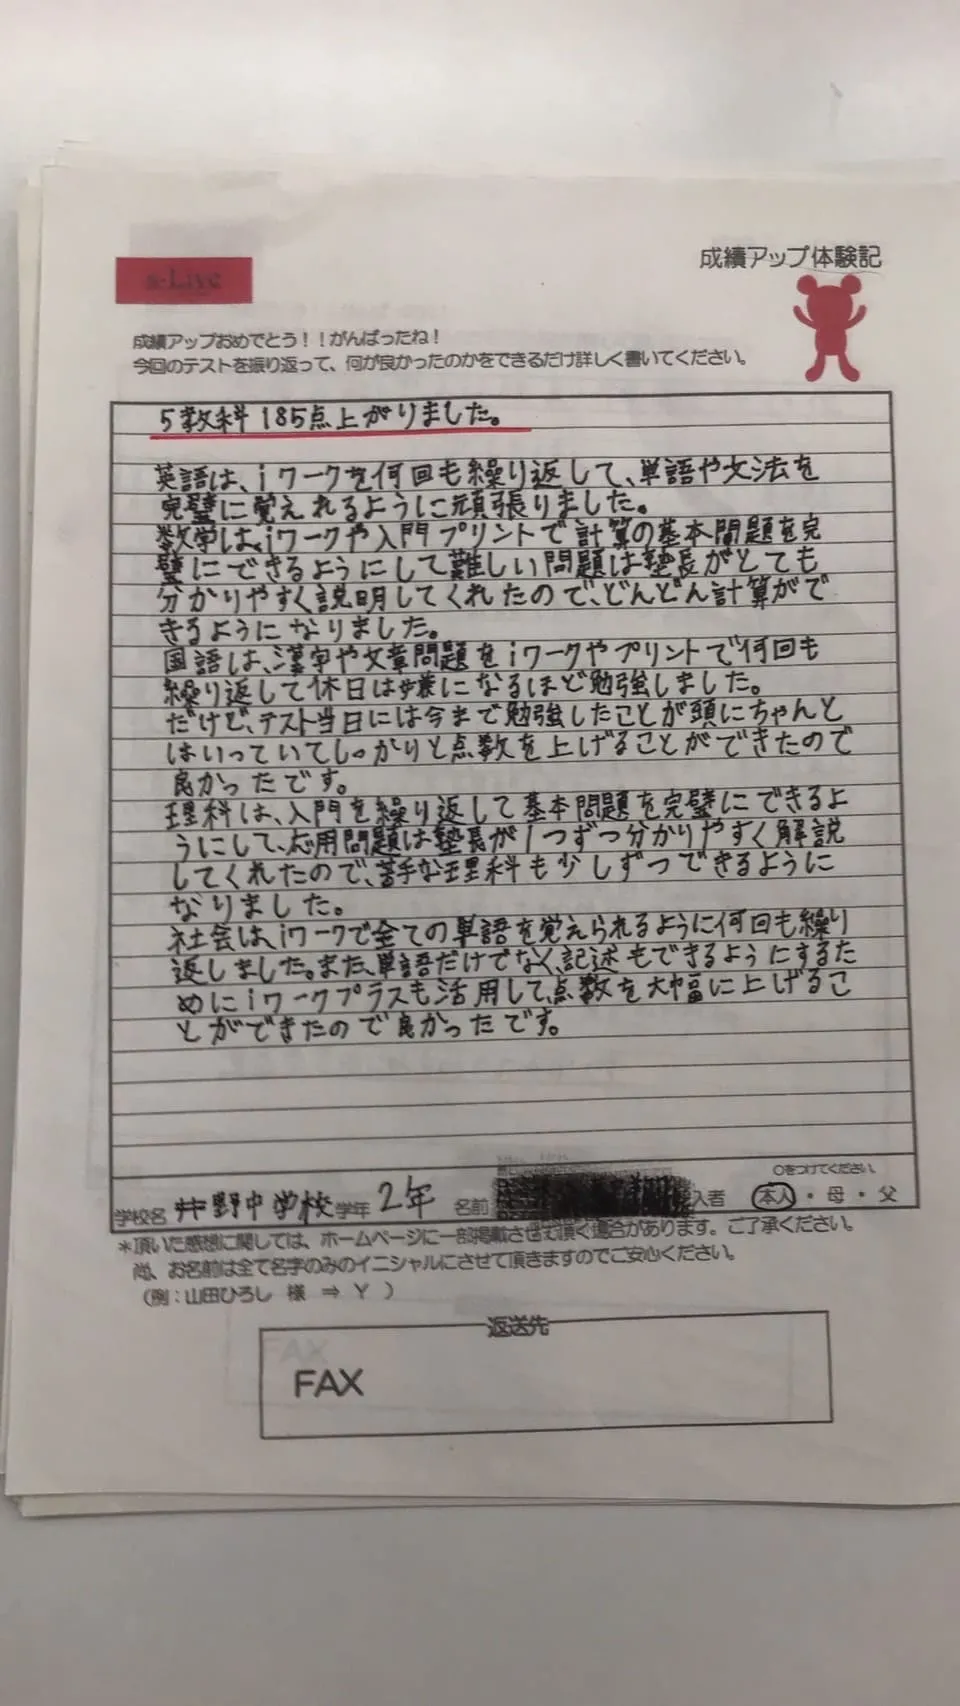 成績アップ体験記
a-Live
成績アップおめでとう！！がんばったね！
今回のテストを振り返って、何が良かったのかをできるだけ詳しく書いてください。
5教科185点上がりました。
英語は、iワークを何回も繰り返して、単語や文法を
完璧に覚えれるように頑張りました。
数学は、iワークや入門プリントで計算の基本問題を完
璧にできるようにして難しい問題は塾長がとても
分かりやすく説明してくれたので、どんどん計算がで
きるようになりました。
国語は、漢字や文章問題をiワークやプリントで何回も
繰り返して休日は嫌になるほど勉強しました。
だけど、テスト当日には今まで勉強したことが頭にちゃんと
はいっていてしっかりと点数を上げることができたので
良かったです。
理科は、入門を繰り返して基本問題を完璧にできるよ
うにして、応用問題は塾長が1つずつ分かりやすく解説
してくれたので、苦手な理科も少しずつできるように
なりました。
社会は、iワークで全ての単語を覚えられるように何回も繰り
返しました。また、単語だけでなく、記述もできるようにするた
めにiワークプラスも活用して、点数を大幅に上げるこ
とができたので良かったです。
○をつけてください。
学校名 井野中学校 学年 2年 名前 入者 本人・母・父
＊頂いた感想に関しては、ホームページに一部掲載させて頂く場合があります。ご了承ください。
尚、お名前は全て名字のみのイニシャルにさせて頂きますのでご安心ください。
（例：山田ひろし 様 ⇒ Y ）
返送先
FAX